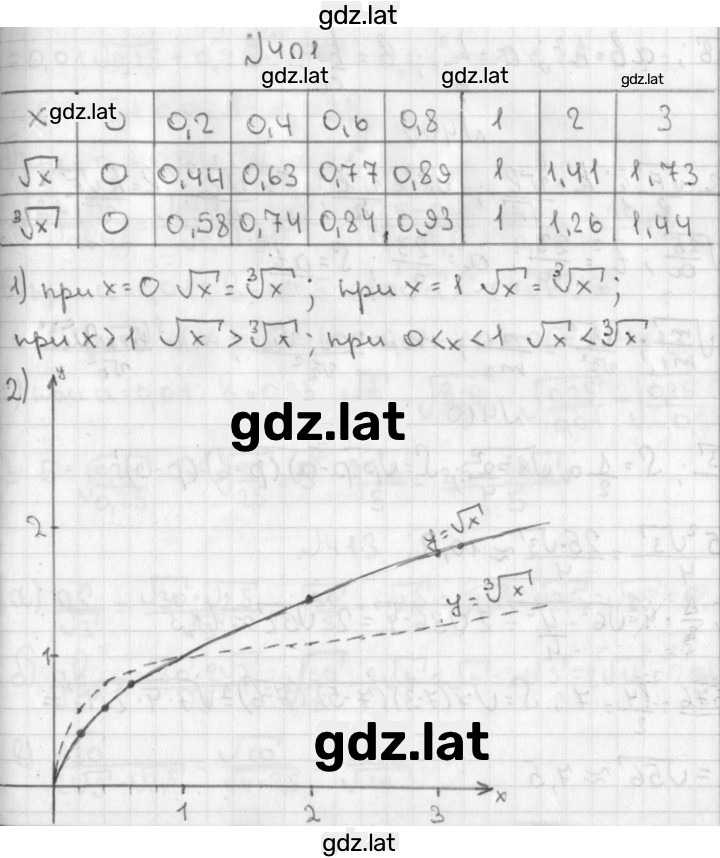 gdz.lat
№401
gdz.lat gdz.lat gdz.lat
x gdz.lat 0 0,2 0,4 0,6 0,8 1 2 3
√x 0 0,44 0,63 0,77 0,89 1 1,41 1,73
∛x 0 0,58 0,74 0,84 0,93 1 1,26 1,44
1) при x=0 √x = ∛x; при x=1 √x = ∛x;
при x>1 √x > ∛x; при 0<x<1 √x < ∛x
2) y
gdz.lat
2 y=√x
y=∛x
1
gdz.lat
1 2 3 x
gdz.lat